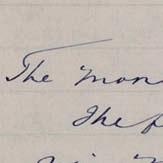 The Mon
The f